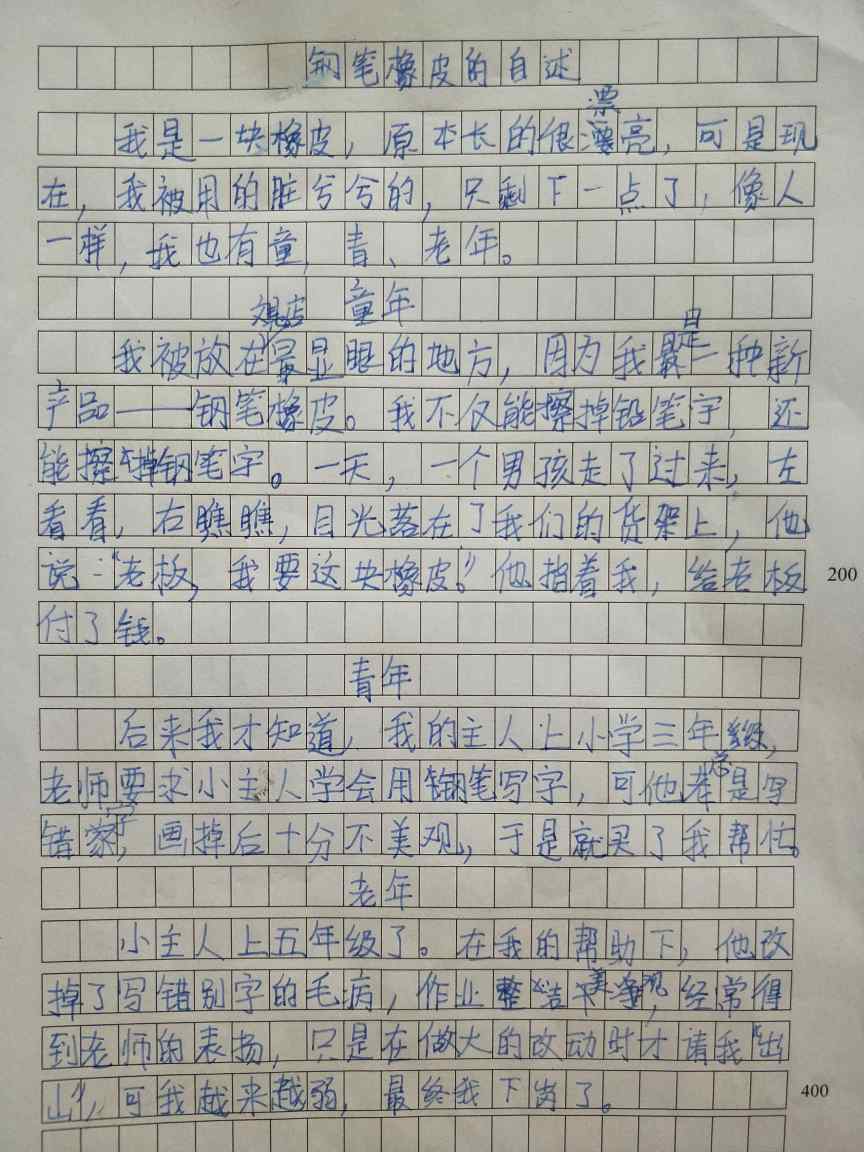 钢笔橡皮的自述
我是一块橡皮，原本长的很漂亮，可是现
在，我被用的脏兮兮的，只剩下一点了，像人
一样，我也有童、青、老年。
童年
我被放在文具店最显眼的地方，因为我是一种新
产品——钢笔橡皮。我不仅能擦掉铅笔字，还
能擦掉钢笔字。一天，一个男孩走了过来，左
看看，右瞧瞧，目光落在了我们的货架上，他
说：“老板，我要这块橡皮。”他指着我，给老板
付了钱。
200
青年
后来我才知道，我的主人上小学三年级，
老师要求小主人学会用钢笔写字，可他老是写
错字，画掉后十分不美观，于是就买了我帮忙。
老年
小主人上五年级了。在我的帮助下，他改
掉了写错别字的毛病，作业整洁美观，经常得
到老师的表扬，只是在做大的改动时才请我“出
山”，可我越来越弱，最终我下岗了。
400